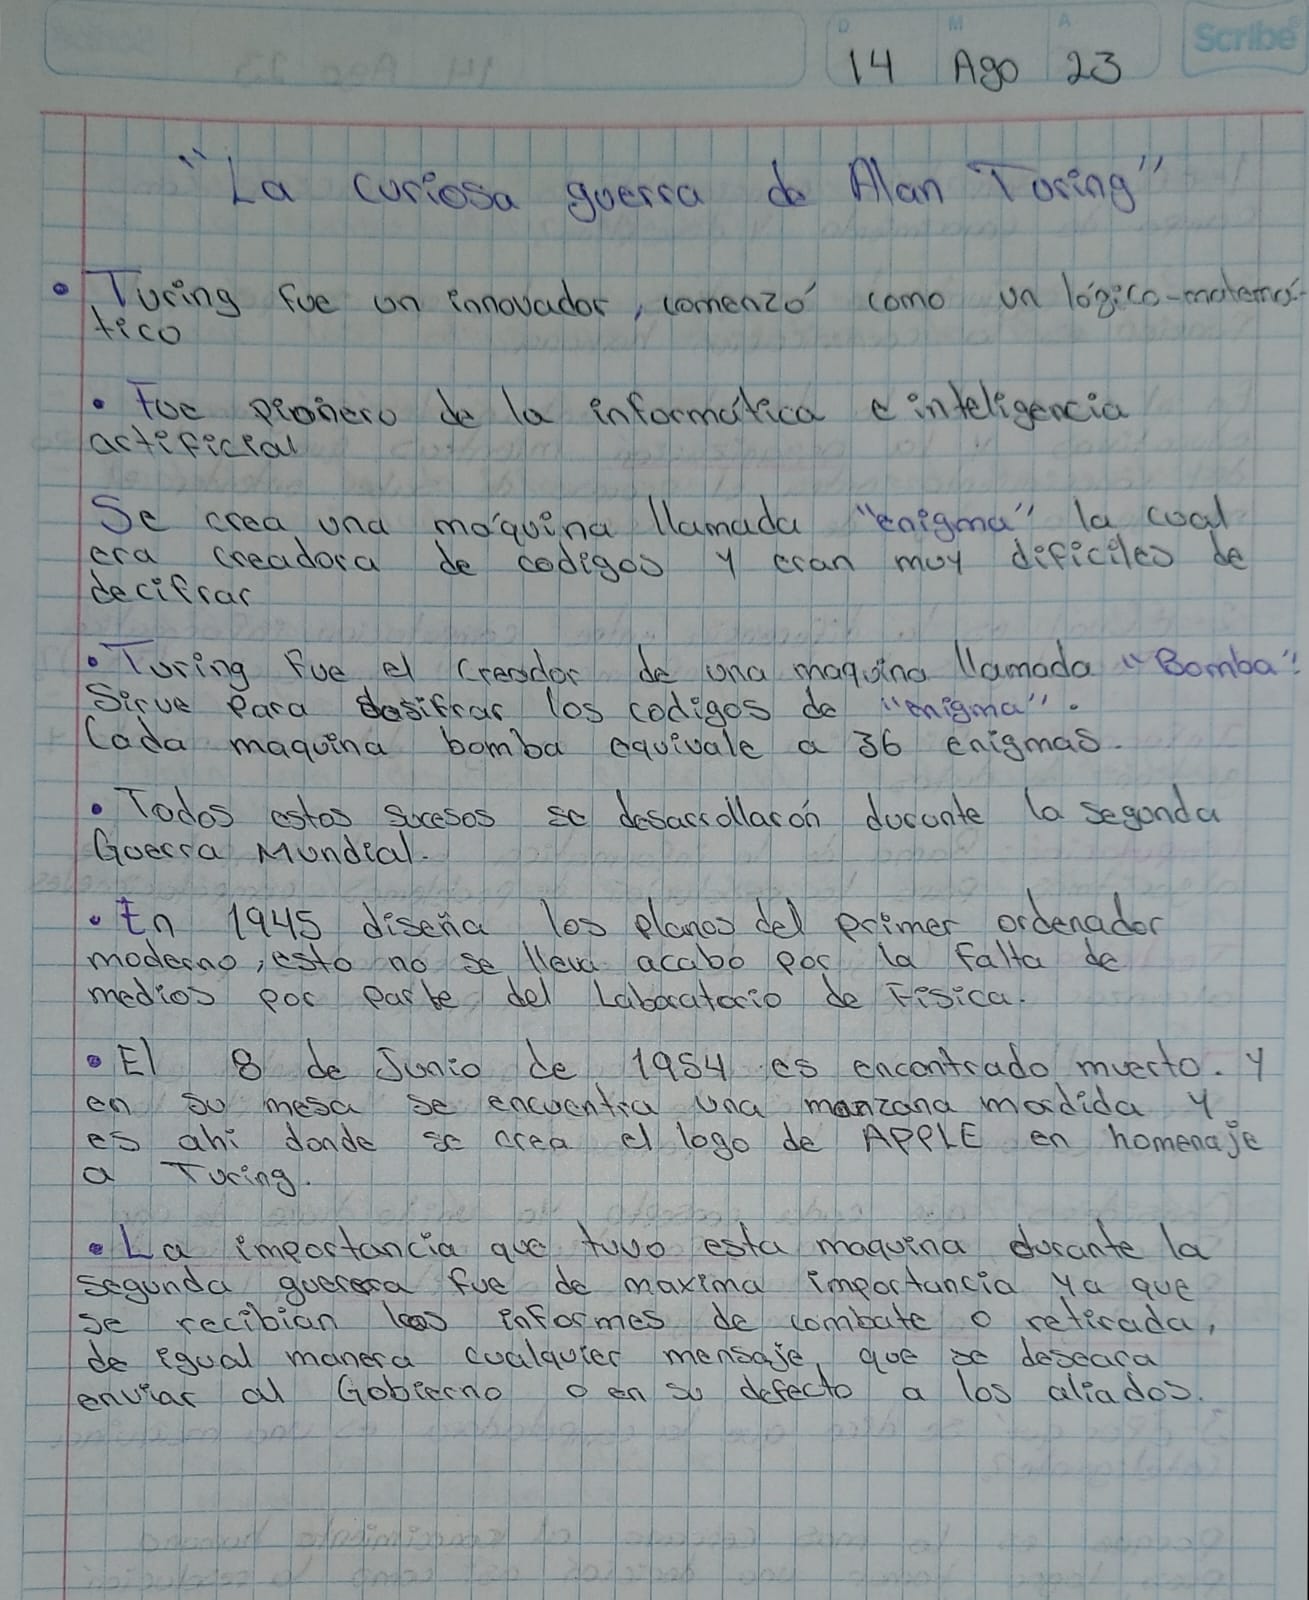 D M A
14 Ago 23
Scribe
"La curiosa guerra de Alan Turing"
• Turing fue un innovador, comenzó como un lógico-matemá-
tico
• Fue pionero de la informática e inteligencia
artificial
Se crea una máquina llamada "enigma" la cual
era creadora de codigos y eran muy dificiles de
decifrar
• Turing fue el creador de una maquina llamada "Bomba".
Sirve para desifrar los codigos de "enigma".
Cada maquina bomba equivale a 36 enigmas.
• Todos estos sucesos se desarrollarón durante la segunda
Guerra Mundial.
• En 1945 diseña los planos del primer ordenador
moderno, esto no se lleva acabo por la falta de
medios por parte del Laboratorio de Fisica.
• El 8 de Junio de 1954 es encontrado muerto. y
en su mesa se encuentra una manzana mordida y
es ahi donde se crea el logo de APPLE en homenaje
a Turing.
• La importancia que tuvo esta maquina durante la
segunda guerra fue de maxima importancia ya que
se recibian los informes de combate o retirada,
de igual manera cualquier mensaje que se deseara
enviar al Gobierno o en su defecto a los aliados.